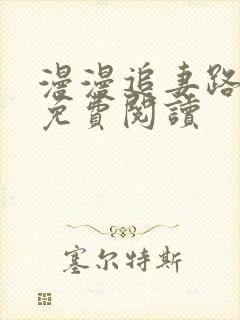 漫漫追妻路
免費閱讀
塞尔特斯